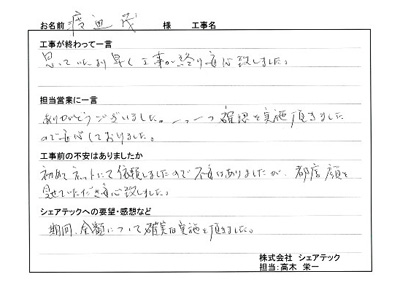 お名前 渡辺 茂 様 工事名
工事が終わって一言
思っていたより早く工事が終り安心致しました。
担当営業に一言
ありがとうございました。一つ一つ確認を実施頂きました
ので安心しておりました。
工事前の不安はありましたか
初めてネットにて依頼しましたので不安はありましたが、都度 顔を
見せていただき安心致しました。
シェアテックへの要望・感想など
期間、金額について確実な実施を頂きました。
株式会社 シェアテック
担当:高木 栄一